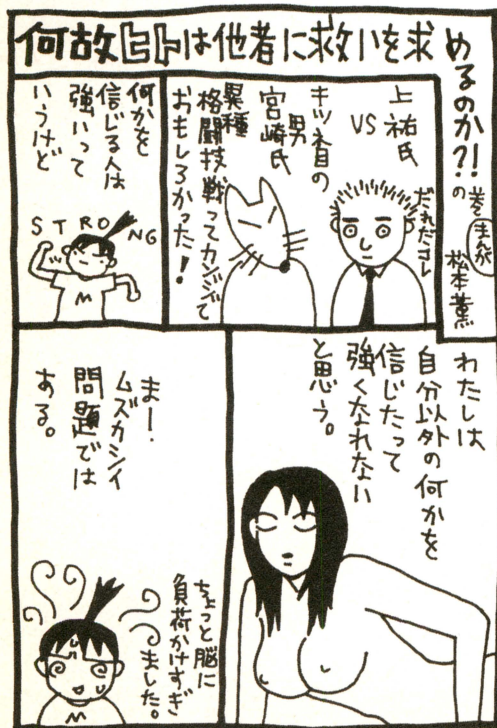 何故ヒトは他者に救いを求めるのか?!の巻
まんが
松本薫
上祐氏
VS
キツネ目の
男
宮崎氏
異種
格闘技戦ってカンジで
おもしろかった!
だれだコレ
何かを
信じる人は
強いって
いうけど
STRONG
M
わたしは
自分以外の何かを
信じたって
強くなれない
と思う。
まー
ムズカシイ
問題では
ある。
ちょっと脳に
負荷かけすぎ
ました。
M